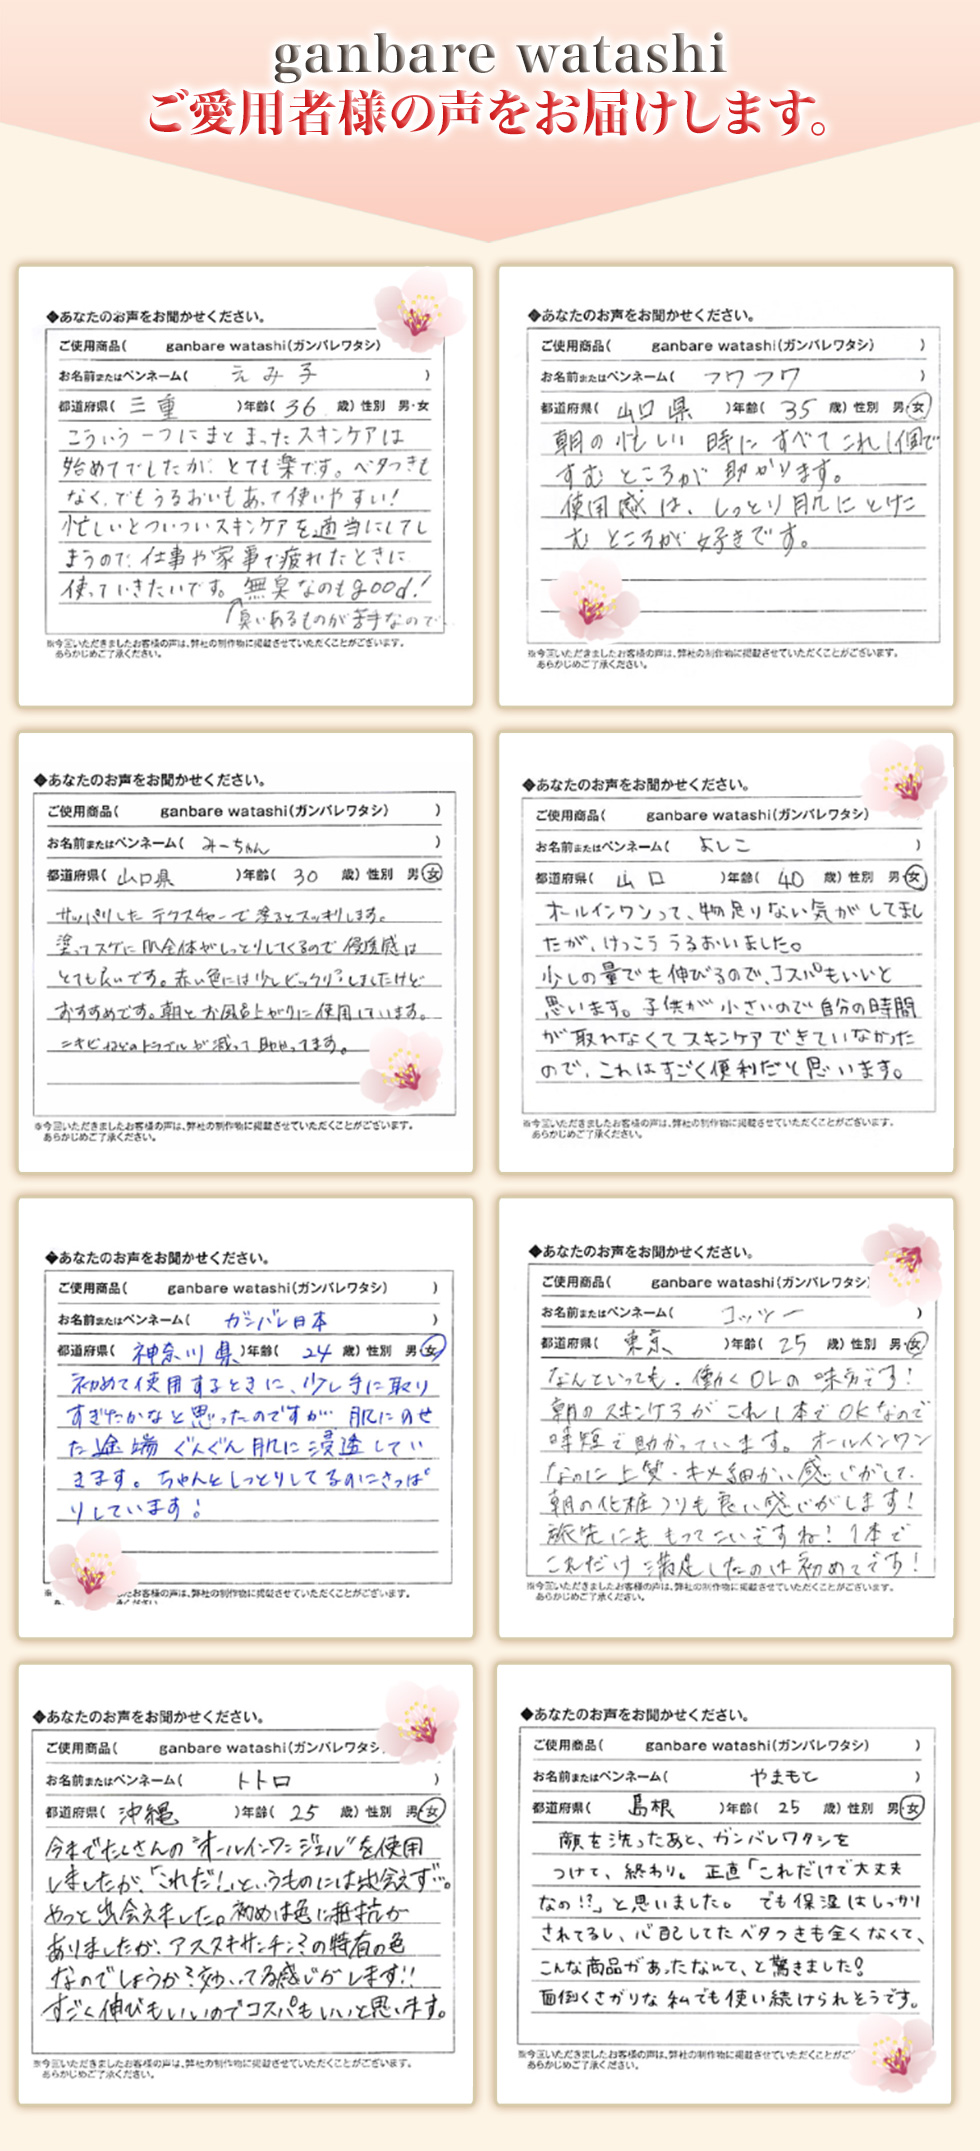 ganbare watashi
ご愛用者様の声をお届けします。
◆あなたのお声をお聞かせください。
ご使用商品( ganbare watashi(ガンバレワタシ)
お名前またはペンネーム( えみ子 )
都道府県( 三重 )年齢( 36 歳) 性別 男・女
こういう一つにまとまったスキンケアは
始めてでしたが、とても楽です。ベタつきも
なく、でもうるおいもあって使いやすい!
忙しいとついついスキンケアを適当にしてし
まうので、仕事や家事で疲れたときに
使っていきたいです。無臭なのもgood!
臭いあるものが苦手なので
※今回いただきましたお客様の声は、弊社の制作物に掲載させていただくことがございます。
あらかじめご了承ください。
◆あなたのお声をお聞かせください。
ご使用商品( ganbare watashi(ガンバレワタシ) )
お名前またはペンネーム( フワフワ )
都道府県( 山口県 )年齢( 35 歳) 性別 男・女
朝の忙しい時にすべてこれ1個で
すむところが助かります。
使用感は、しっとり肌にとけこ
むところが好きです。
※今回いただきましたお客様の声は、弊社の制作物に掲載させていただくことがございます。
あらかじめご了承ください。
◆あなたのお声をお聞かせください。
ご使用商品( ganbare watashi(ガンバレワタシ) )
お名前またはペンネーム( みーちゃん )
都道府県( 山口県 )年齢( 30 歳) 性別 男・女
サッパリしたテクスチャーで塗るとスッキリします。
塗ってスグに肌全体がしっとりしてくるので浸透感は
とても良いです。赤い色には少しビックリしましたけど
おすすめです。朝とお風呂上がりに使用しています。
ニキビなどのトラブルが減って助かってます。
※今回いただきましたお客様の声は、弊社の制作物に掲載させていただくことがございます。
あらかじめご了承ください。
◆あなたのお声をお聞かせください。
ご使用商品( ganbare watashi(ガンバレワタシ)
お名前またはペンネーム( よしこ )
都道府県( 山口 )年齢( 40 歳) 性別 男・女
オールインワンって、物足りない気がしてまし
たが、けっこううるおいました。
少しの量でも伸びるので、コスパもいいと
思います。子供が小さいので自分の時間
が取れなくてスキンケアできていなかった
ので、これはすごく便利だと思います。
※今回いただきましたお客様の声は、弊社の制作物に掲載させていただくことがございます。
あらかじめご了承ください。
◆あなたのお声をお聞かせください。
ご使用商品( ganbare watashi(ガンバレワタシ) )
お名前またはペンネーム( ガンバレ日本 )
都道府県( 神奈川県 )年齢( 24 歳) 性別 男・女
初めて使用するときに、少し手に取り
すぎたかなと思ったのですが… 肌にのせ
た途端ぐんぐん肌に浸透してい
きます。ちゃんとしっとりしてるのにさっぱ
りしています!
お客様の声は、弊社の制作物に掲載させていただくことがございます。
◆あなたのお声をお聞かせください。
ご使用商品( ganbare watashi(ガンバレワタシ)
お名前またはペンネーム( コッツー )
都道府県( 東京 )年齢( 25 歳) 性別 男・女
なんといっても、働くOLの味方です!
朝のスキンケアがこれ1本でOKなので
時短で助かっています。オールインワン
なのに上質・キメ細かい感じがして、
朝の化粧ノリも良い感じがします!
旅先にももってこいですね!1本で
これだけ満足したのは初めてです!
※今回いただきましたお客様の声は、弊社の制作物に掲載させていただくことがございます。
あらかじめご了承ください。
◆あなたのお声をお聞かせください。
ご使用商品( ganbare watashi(ガンバレワタシ)
お名前またはペンネーム( トトロ )
都道府県( 沖縄 )年齢( 25 歳) 性別 男・女
今までたくさんの"オールインワンジェル"を使用
しましたが、「これだ!」というものには出会えず…。
やっと出会えました。初めは色に抵抗が
ありましたが、アスタキサンチンの特有の色
なのでしょうか?効いてる感じがします!!
すごく伸びもいいのでコスパもいいと思います。
※今回いただきましたお客様の声は、弊社の制作物に掲載させていただくことがございます。
あらかじめご了承ください。
◆あなたのお声をお聞かせください。
ご使用商品( ganbare watashi(ガンバレワタシ) )
お名前またはペンネーム( やまもと )
都道府県( 島根 )年齢( 25 歳) 性別 男・女
顔を洗ったあと、ガンバレワタシを
つけて、終わり。正直「これだけで大丈夫
なの!?」と思いました。でも保湿はしっかり
されてるし、心配してたベタつきも全くなくて、
こんな商品があったなんて、と驚きました!
面倒くさがりな私でも使い続けられそうです。
※今回いただきましたお客様の声は、弊社の制作物に掲載させていただくことがご
あらかじめご了承ください。